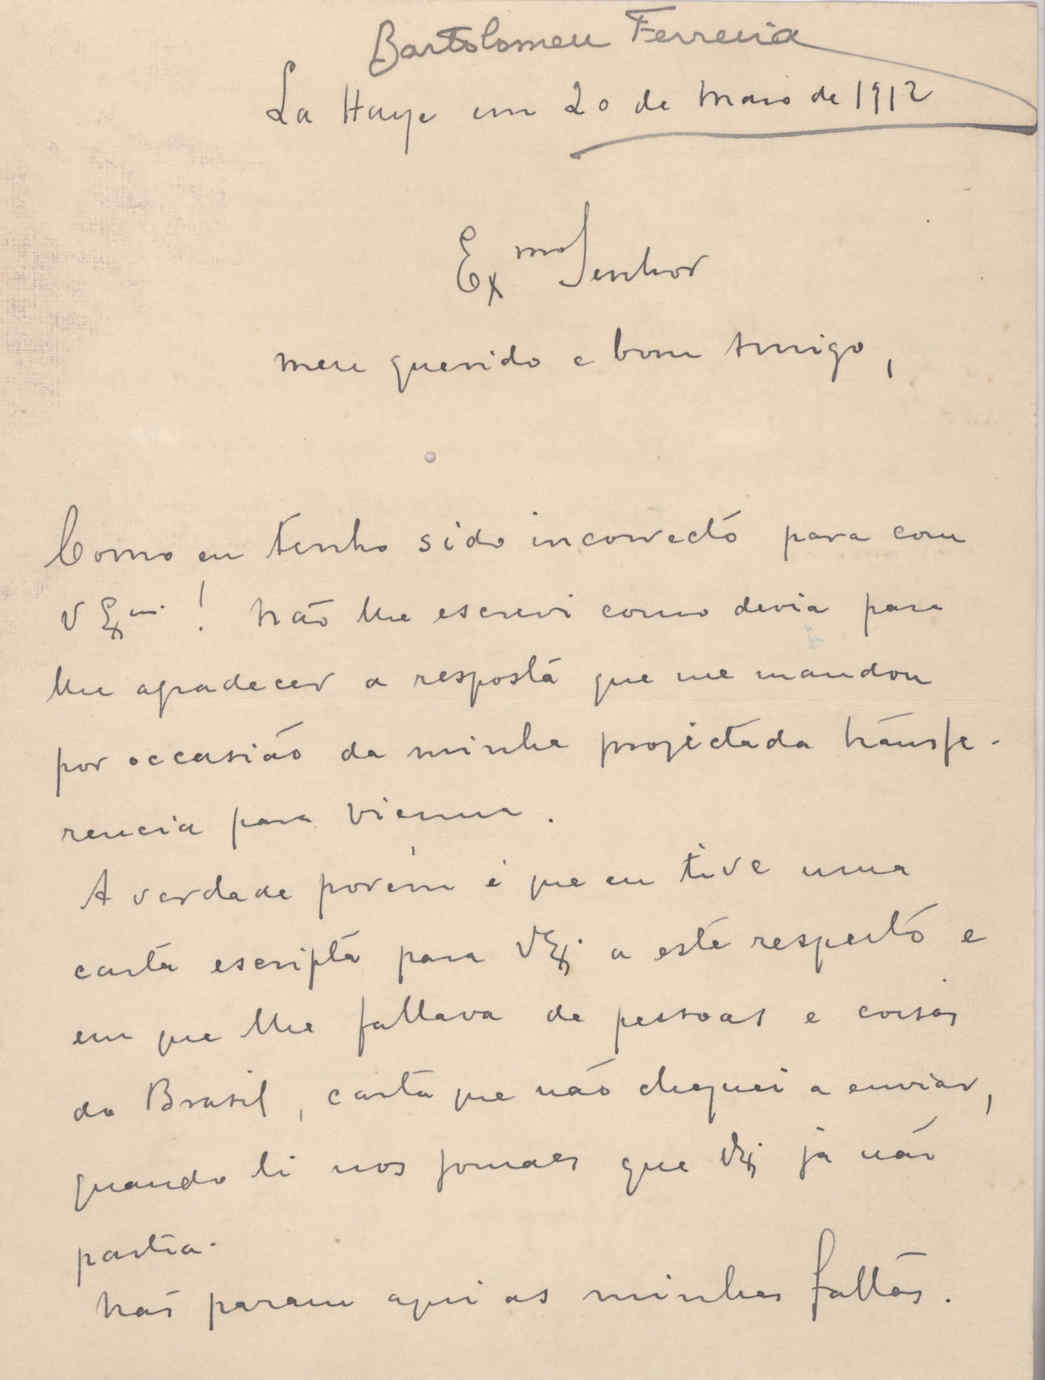 Bartolomeu Ferreira
La Haye em 20 de Maio de 1912
Exmo Senhor
meu querido e bom Amigo,
Como eu tenho sido incorrecto para com
V Exm. ! Não lhe escrevi como devia para
lhe agradecer a resposta que me mandou
por occasião da minha projectada transfe-
rencia para Vienna.
A verdade porém é que eu tive uma
carta escripta para VEx. a este respeito e
em que lhe fallava de pessoas e coisas
do Brasil, carta que não cheguei a enviar,
quando li nos jornaes que VEx. já não
partia.
Não param aqui as minhas faltas.